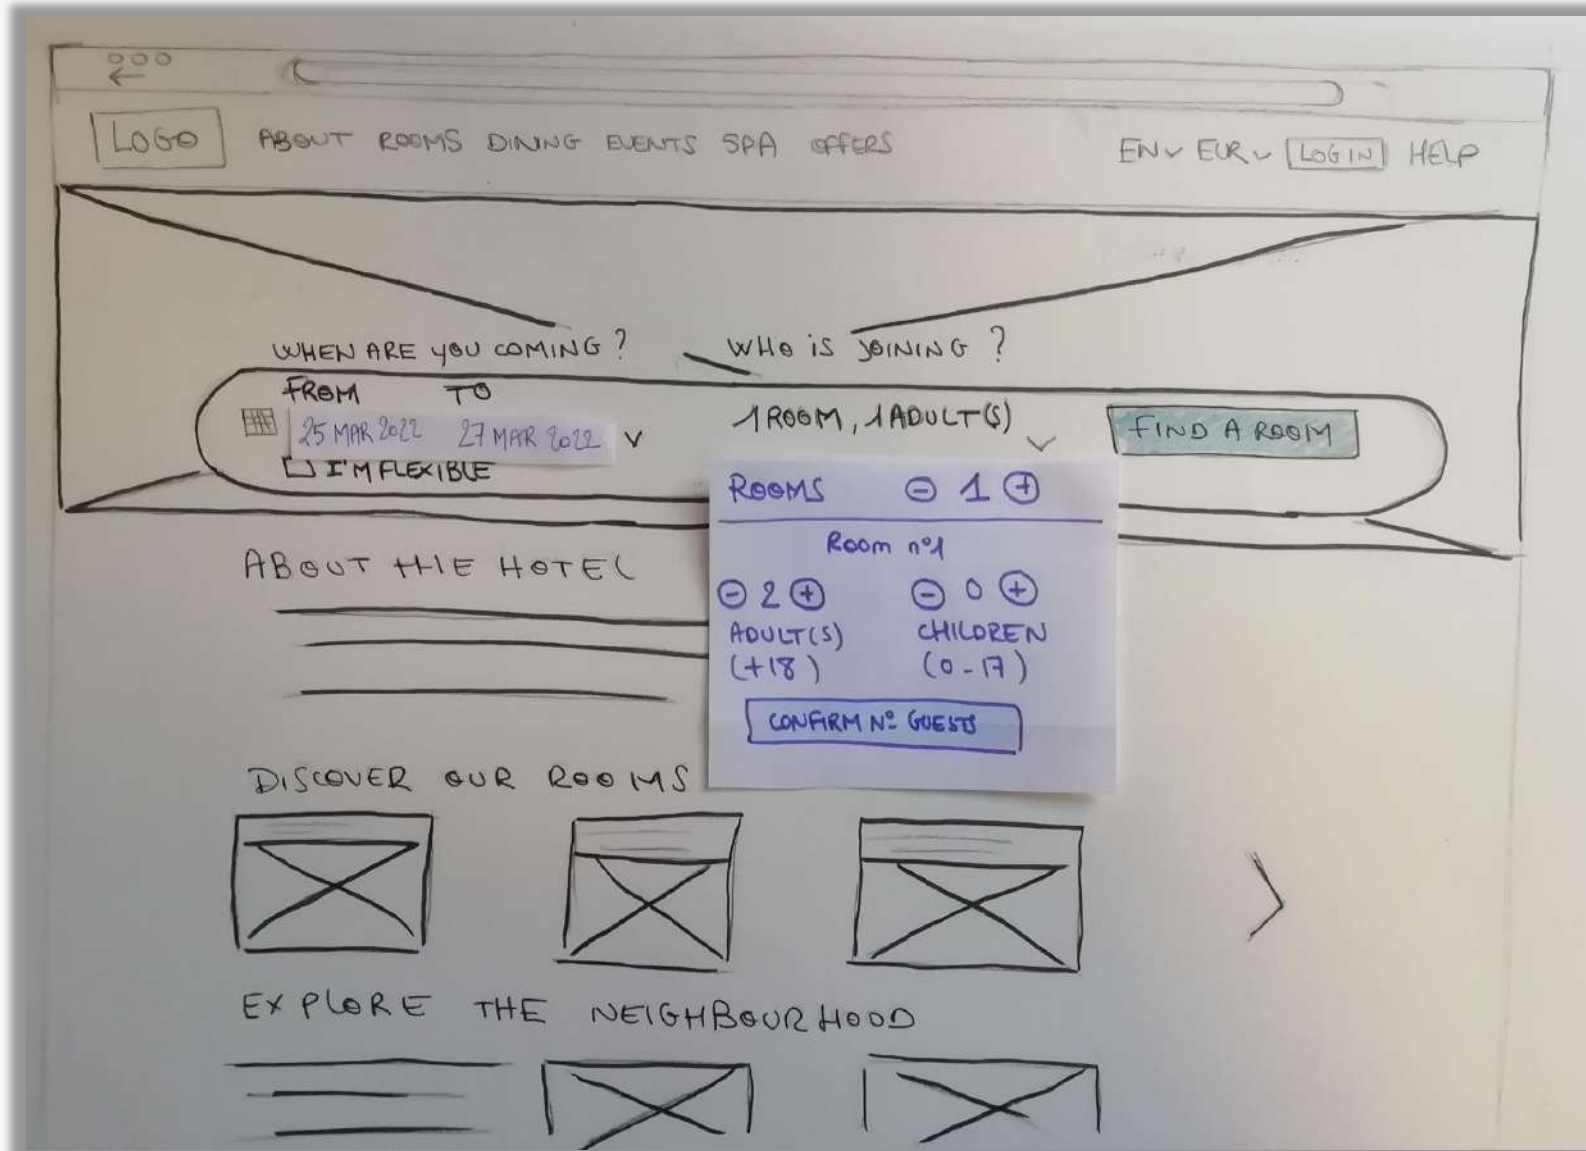 LOGO ABOUT ROOMS DINING EVENTS SPA OFFERS EN EUR LOGIN HELP
WHEN ARE YOU COMING? WHO IS JOINING?
FROM TO
25 MAR 2022 27 MAR 2022
1 ROOM, 1 ADULT(S)
FIND A ROOM
I'M FLEXIBLE
ROOMS - 1 +
Room nº1
- 2 + - 0 +
ADULT(S) CHILDREN
(+18) (0-17)
CONFIRM Nº GUESTS
ABOUT THE HOTEL
DISCOVER OUR ROOMS
EXPLORE THE NEIGHBOURHOOD